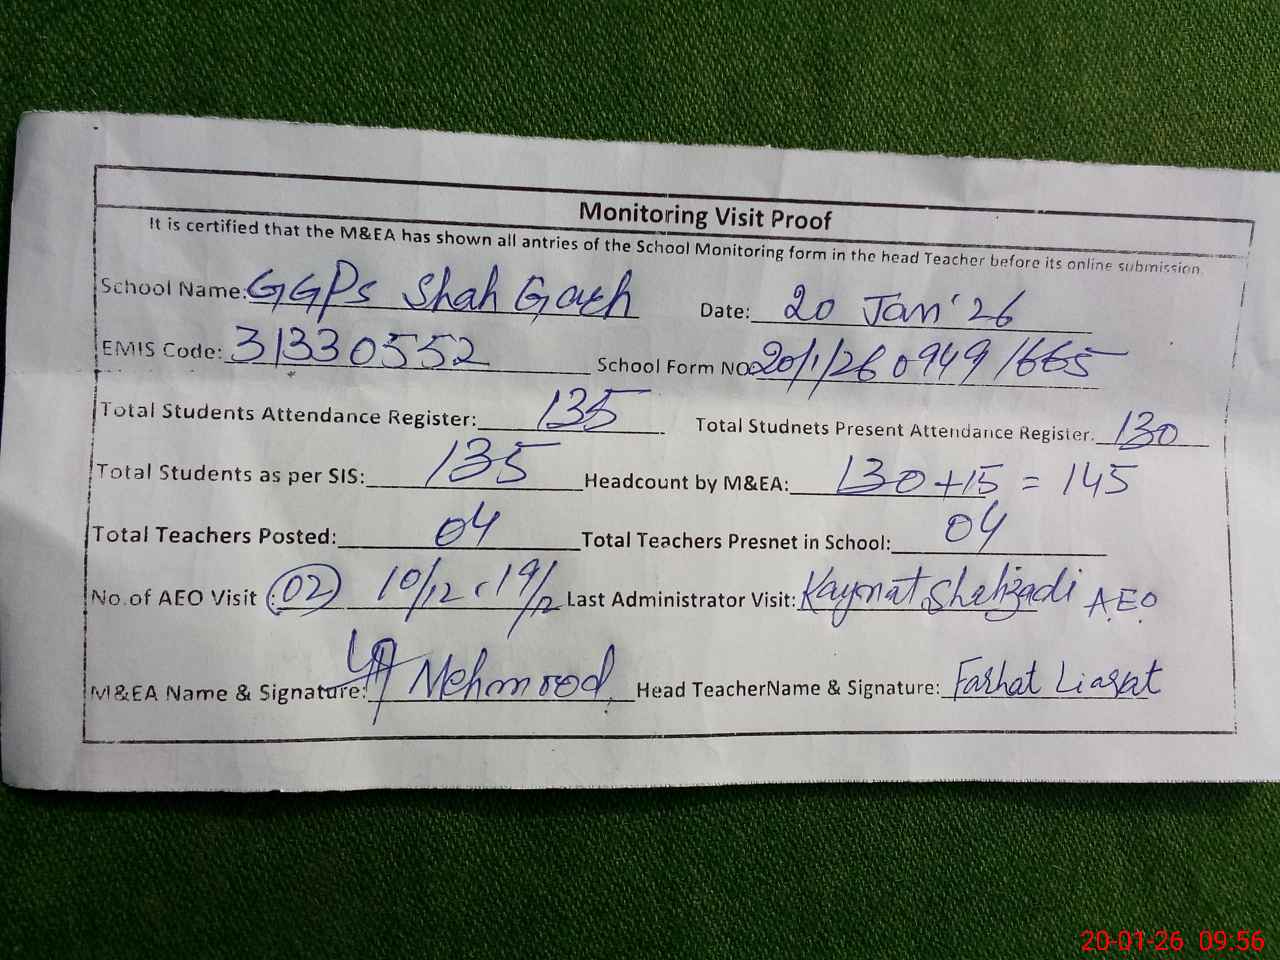 Monitoring Visit Proof
It is certified that the M&EA has shown all antries of the School Monitoring form in the head Teacher before its online submission.
School Name: GGPs Shah Garh Date: 20 Jan'26
EMIS Code: 31330552 School Form NO 20/1/26 0949 1665
Total Students Attendance Register: 135 Total Studnets Present Attendance Register. 130
Total Students as per SIS: 135 Headcount by M&EA: 130+15 = 145
Total Teachers Posted: 04 Total Teachers Presnet in School: 04
No.of AEO Visit 02 10/12, 19/12 Last Administrator Visit: Kaynat Shahzadi A.E.O.
M&EA Name & Signature: Mehmood Head TeacherName & Signature: Farhat Liaqat
20-01-26 09:56